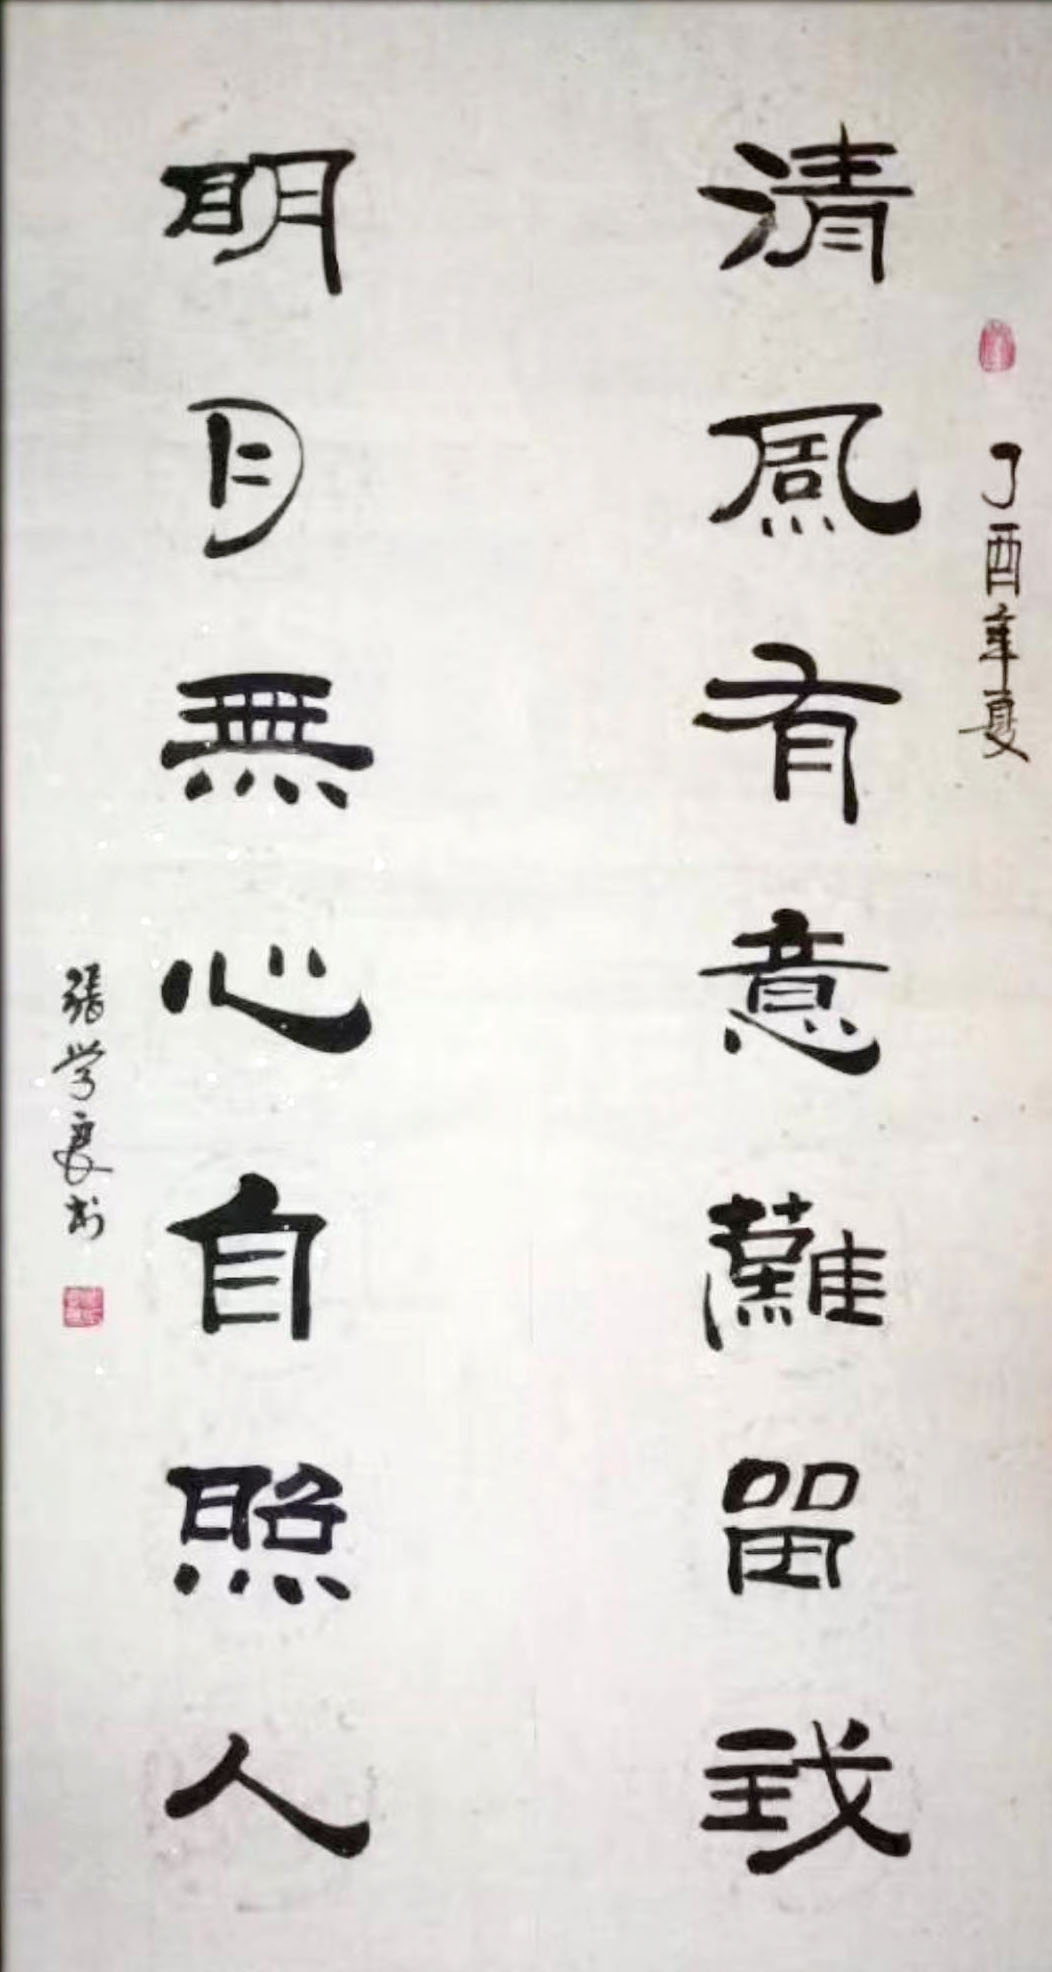 丁酉年夏
清風有意難留我
明月無心自照人
張学良书